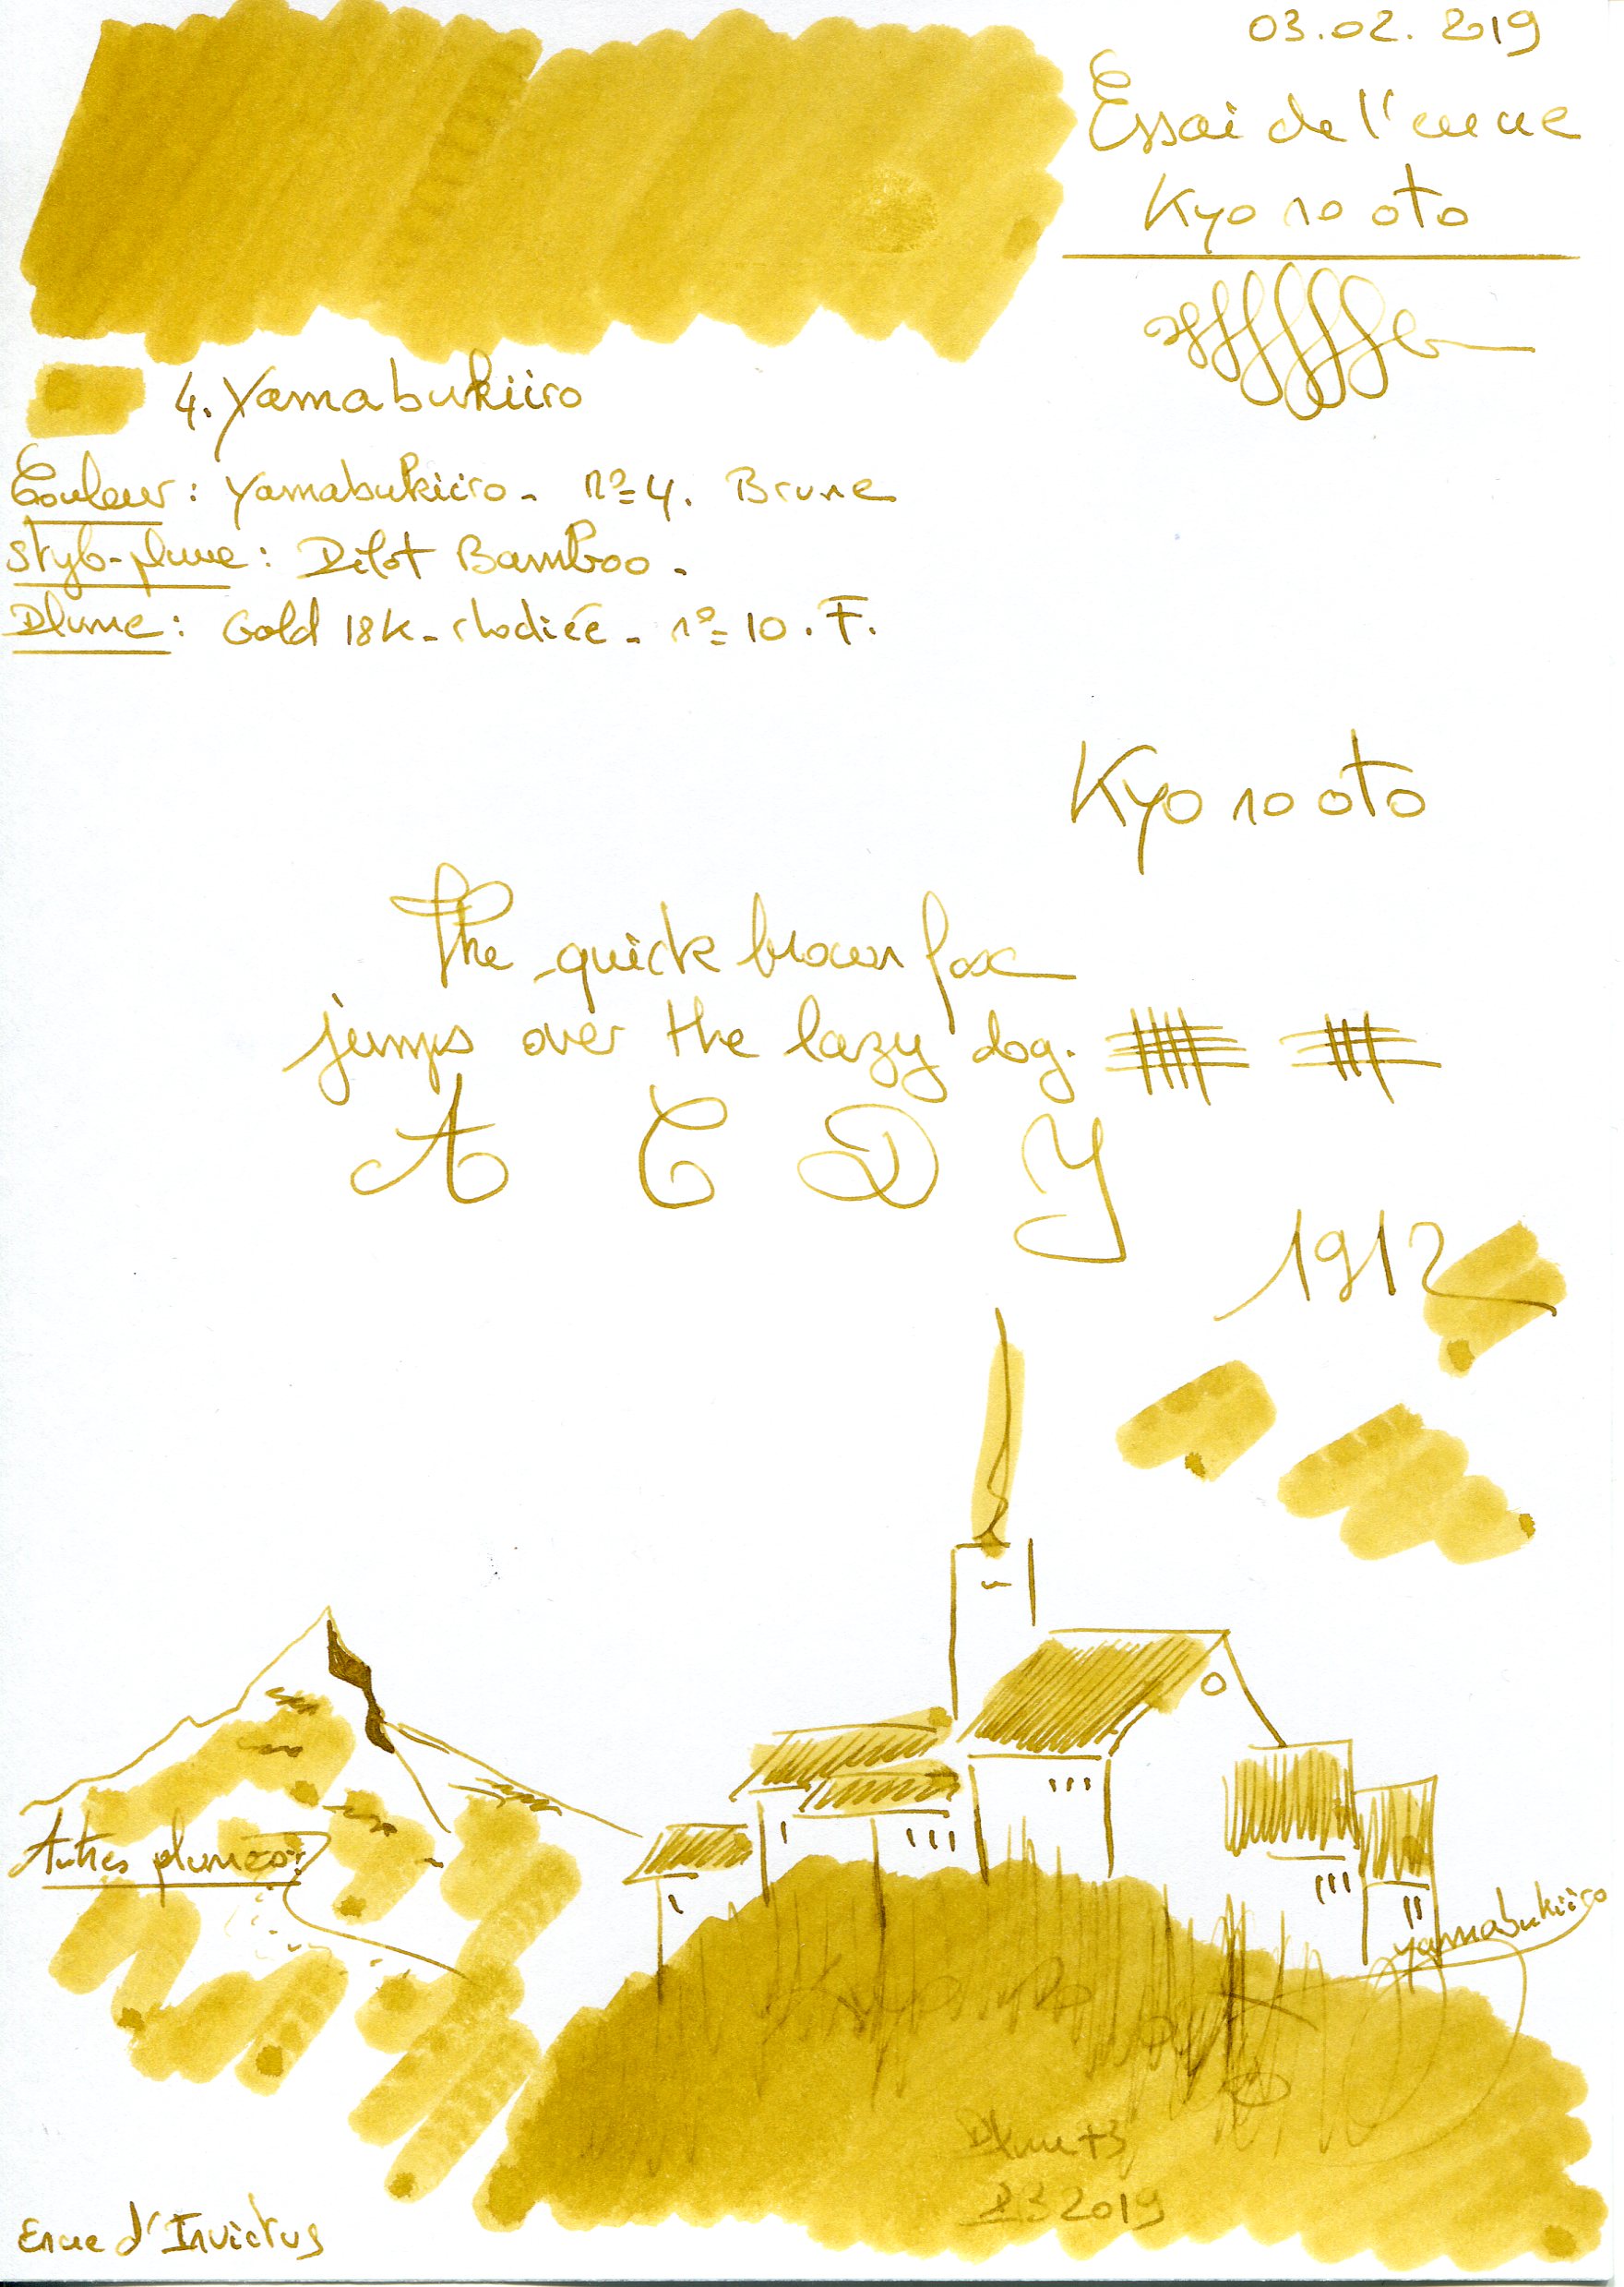 03.02. 2019
Essai de l'encre
Kyo no oto
4. Yamabukiiro
Couleur : Yamabukiiro - nº 4. Brune
Stylo-plume : Pilot Bamboo.
Plume : Gold 18K - rhodiée - nº 10. F.
Kyo no oto
The quick brown fox
jumps over the lazy dog.
A C D Y
1912
Autres plumes :
Yamabukiiro
Kyo no oto
2019
Encre d'Invictus